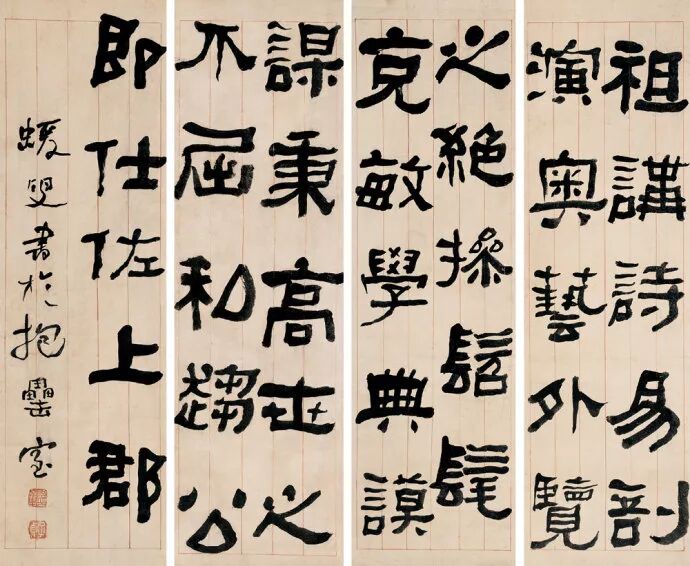 祖講詩易剖
演奧藝外覽
之絕操髫髦
克敏學典謨
謀秉高世之
不屈私趨公
即仕佐上郡
蝯叟書於抱罍室